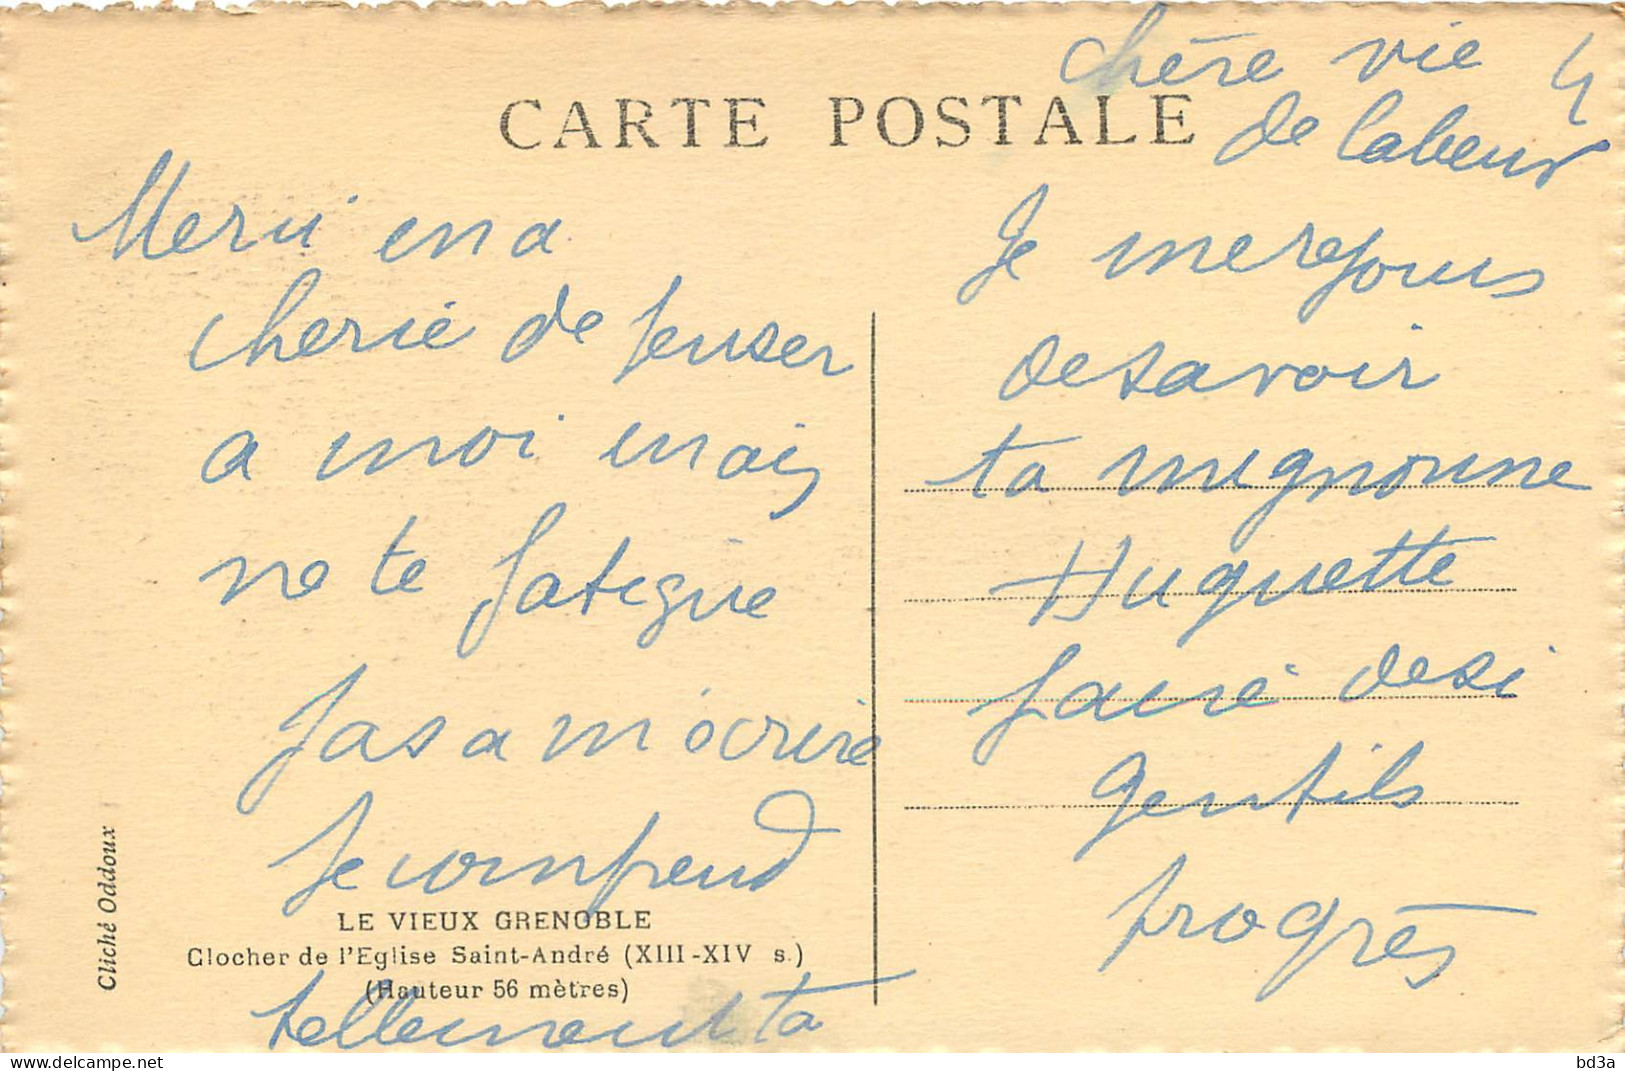 CARTE POSTALE
Merci ma
cherie de penser
a moi mais
ne te fatigue
pas a m'écrire
Je comprend
LE VIEUX GRENOBLE
Clocher de l'Eglise Saint-André (XIII-XIV s.)
(Hauteur 56 mètres)
tellement ta
Cliché Oddoux
chère vie
de labeur
Je me rejouis
de savoir
ta mignonne
Huguette
faire de si
gentils
progrès
bd3a